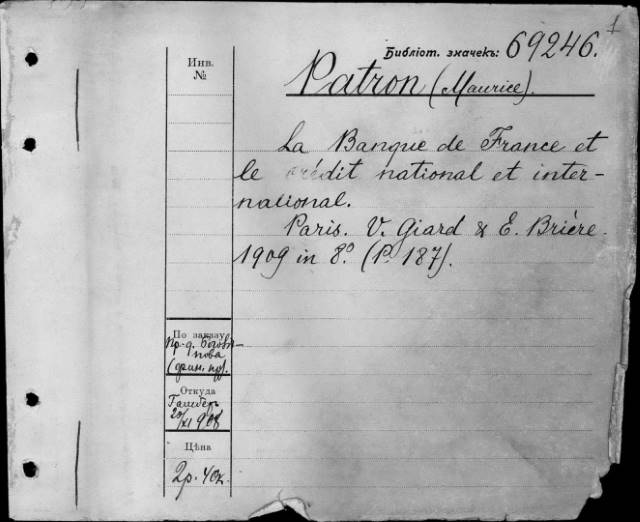 1
Инв.
№
Библіот. значекъ: 69246.
Patron (Maurice).
La Banque de France et
le crédit national et inter-
national.
Paris. V. Giard & E. Brière.
1909 in 8.º (P. 187).
По заказу
пр-д.
(фин. пр).
Откуда
20/XI 908
Цѣна
2р. 40к.